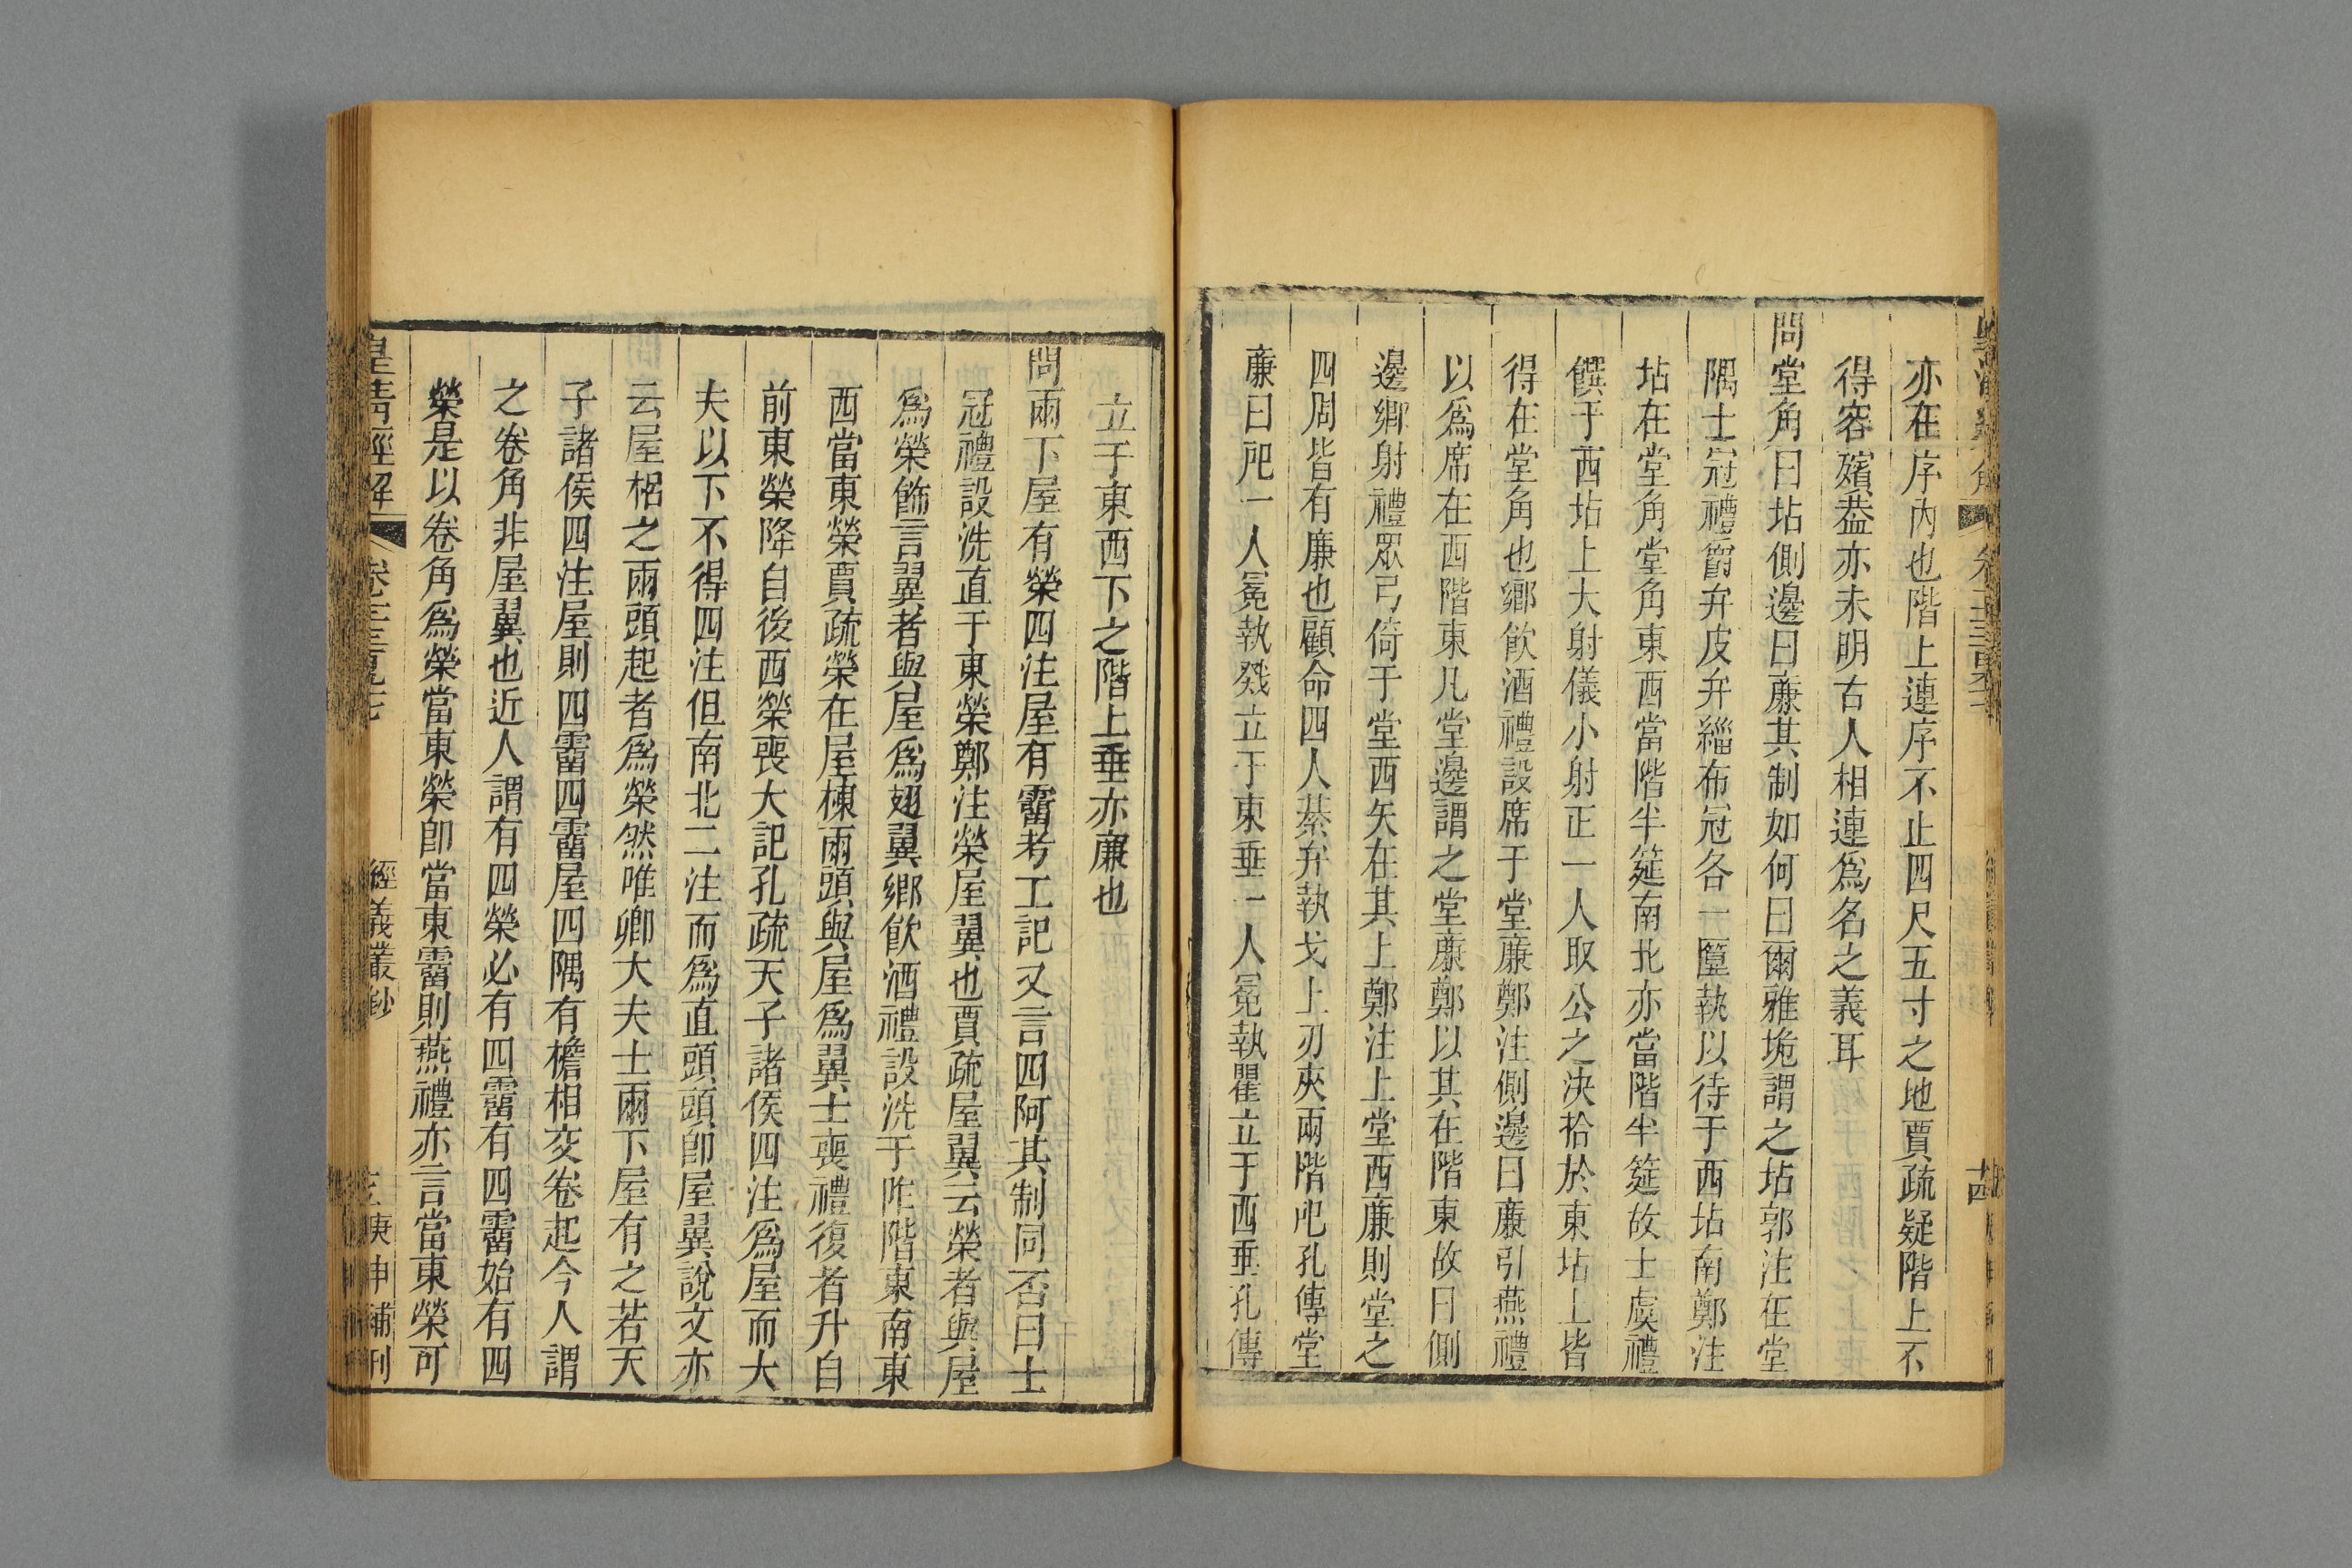 亦在序內也階上連序不止四尺五寸之地賈疏疑階上不
得容殯葢亦未明古人相連爲名之義耳
問堂角曰坫側邊曰廉其制如何曰爾雅垝謂之坫郭注在堂
隅士冠禮爵弁皮弁緇布冠各一匴執以待于西坫南鄭注
坫在堂角堂角東西當階半筵南北亦當階半筵故士虞禮
饌于西坫上大射儀小射正一人取公之決拾於東坫上皆
得在堂角也鄉飲酒禮設席于堂廉鄭注側邊曰廉引燕禮
以爲席在西階東凡堂邊謂之堂廉鄭以其在階東故曰側
邊鄉射禮眾弓倚于堂西矢在其上鄭注上堂西廉則堂之
四周皆有廉也顧命四人綦弁執戈上刃夾兩階戺孔傳堂
廉曰戺一人冕執戣立于東垂一人冕執瞿立于西垂孔傳
立于東西下之階上垂亦廉也
問兩下屋有榮四注屋有霤考工記又言四阿其制同否曰士
冠禮設洗直于東榮鄭注榮屋翼也賈疏屋翼云榮者與屋
爲榮飾言翼者與屋爲翅翼鄉飲酒禮設洗于阼階東南東
西當東榮賈疏榮在屋棟兩頭與屋爲翼士喪禮復者升自
前東榮降自後西榮喪大記孔疏天子諸侯四注爲屋而大
夫以下不得四注但南北二注而爲直頭頭卽屋翼說文亦
云屋梠之兩頭起者爲榮然唯卿大夫士兩下屋有之若天
子諸侯四注屋則四霤四霤屋四隅有檐相交卷起今人謂
之卷角非屋翼也近人謂有四榮必有四霤有四霤始有四
榮是以卷角爲榮當東榮卽當東霤則燕禮亦言當東榮可
皇清經解
經義叢鈔
庚申補刊